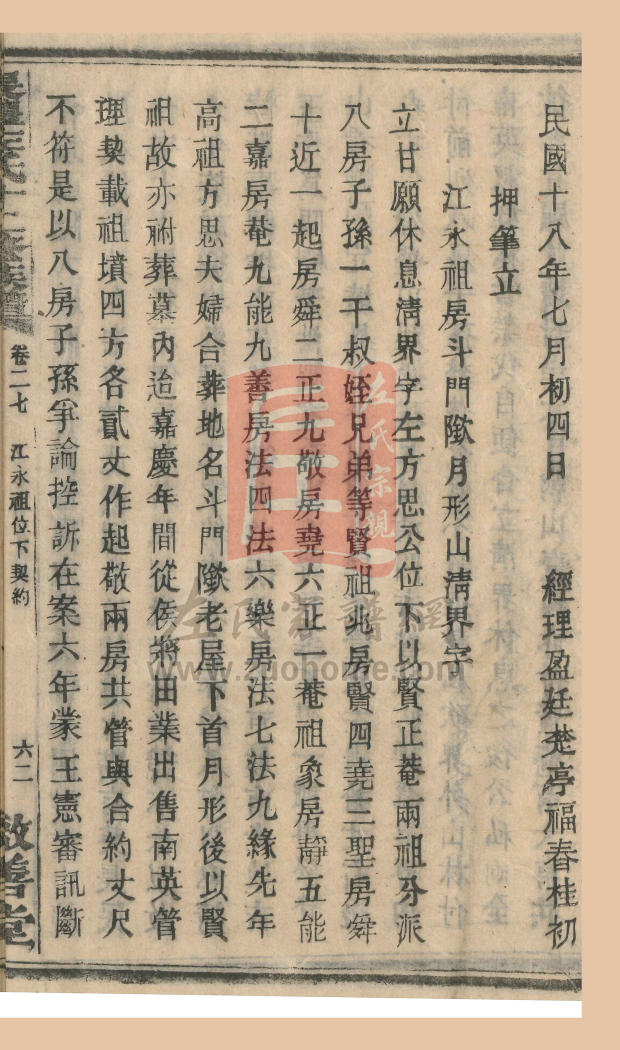 民國十八年七月初四日 經理盈廷楚亭福春桂初
押筆立
江永祖房斗門陇月形山淸界字
立甘願休息淸界字左方思公位下以賢正菴兩祖分派
八房子孫一干叔姪兄弟等賢祖兆房賢四堯三聖房舜
十近一起房舜二正九敬房堯六正一菴祖象房靜五能
二嘉房菴九能九善房法四法六樂房法七法九緣先年
高祖方思夫婦合葬地名斗門陇老屋下首月形後以賢
祖故亦祔葬墓內迨嘉慶年間從侯將田業出售南英管
理契載祖墳四方各貳丈作起敬兩房共管與合約丈尺
不符是以八房子孫爭論控訴在案六年蒙王憲審訊斷
左氏十二修族譜
卷二七 江永祖位下契約
六二
敬善堂
左氏宗親
左氏家譜網
www.zuohome.com